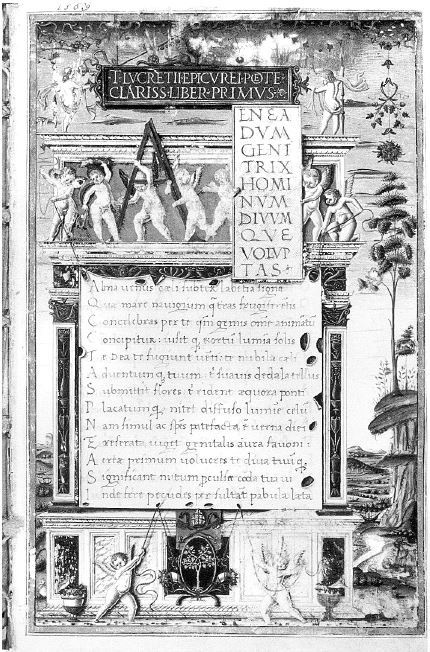 T·LVCRETII EPICVREI POTE
CLARISS·LIBER·PRIMVS·
A
ENEA
DVM
GENI
TRIX
HOMI
NVM
DIVVM
QVE
VOLVP
TAS
Alma uenus cæli subter labētia signa
Quæ mare nauigerum q̄ terras frugiferētis
Concelebras per te qm̄ genus omē animātū
Concipitur: uisitq exortū lumīa solis
Te Dea te fugiunt uenti te nubila cæli
Aduentumq tuum: t' suauis dædala tellus
Submittit flores: t' rident æquora ponti
Placatumq nitet diffuso lumīe celū
Nam simul ac spēs patefacta ē uerna diei
Exserata uiget genitalis aura fauoni
Aeriæ primum uolucres te diua tuūq
Significant initum pculsæ corda tua ui
Inde feræ pecudes persultāt pabula læta